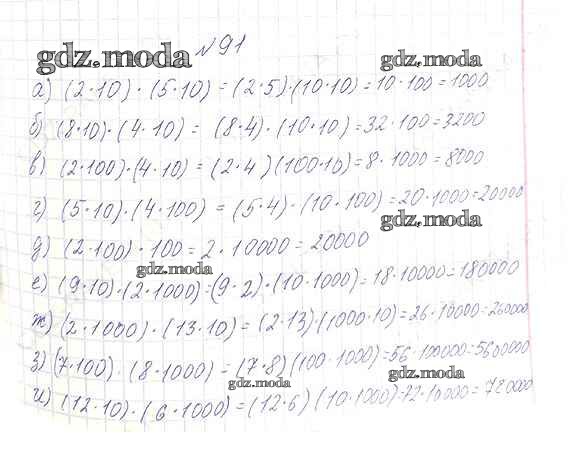 gdz.moda
№91
gdz.moda
а) (2·10)·(5·10) = (2·5)·(10·10) = 10·100 = 1000
б) (8·10)·(4·10) = (8·4)·(10·10) = 32·100 = 3200
в) (2·100)·(4·10) = (2·4)(100·10) = 8·1000 = 8000
г) (5·10)·(4·100) = (5·4)·(10·100) = 20·1000 = 20000
gdz.moda
д) (2·100)·100 = 2·10000 = 20000
gdz.moda
е) (9·10)·(2·1000) = (9·2)·(10·1000) = 18·10000 = 180000
ж) (2·1000)·(13·10) = (2·13)(1000·10) = 26·10000 = 260000
з) (7·100)·(8·1000) = (7·8)(100·1000) = 56·100000 = 5600000
gdz.moda
gdz.moda
и) (12·10)·(6·1000) = (12·6)(10·1000) = 72·10000 = 720000